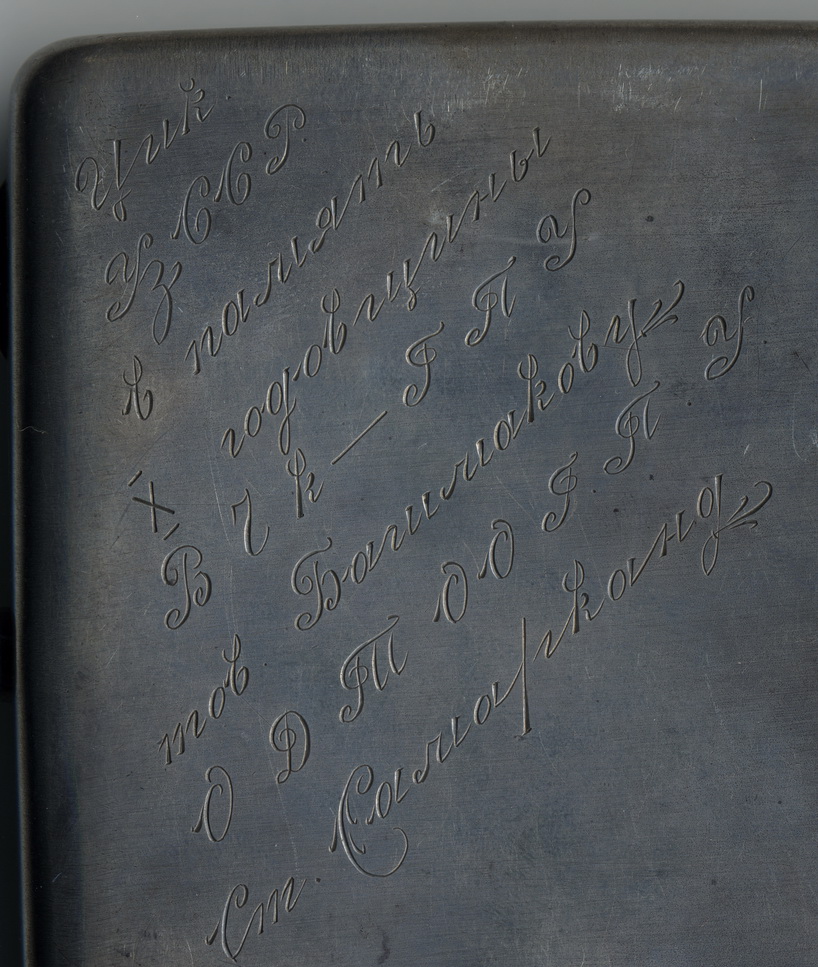 Цик.
УзССР
в память
X годовщины
В Ч к — Г П У
тов Башмакову
О Д Т О О Г П У
Ст. Самарканд